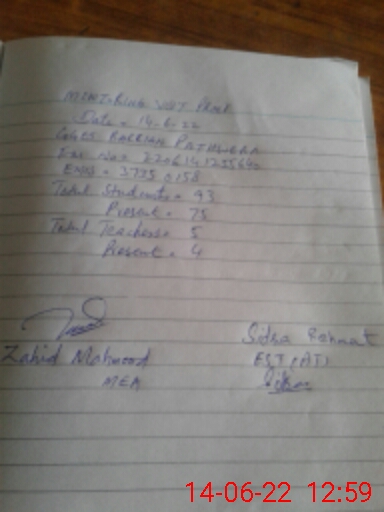 MONITORING VISIT PROF
Date = 14-6-22
GGES BARRIAN PATHWARA
Emis = 3735 0158
Total Students = 93
Present = 75
Total Teachers = 5
Present = 4
Zahid Mahmood
MEA
Sidra Rehmat
EST (AT)
14-06-22 12:59